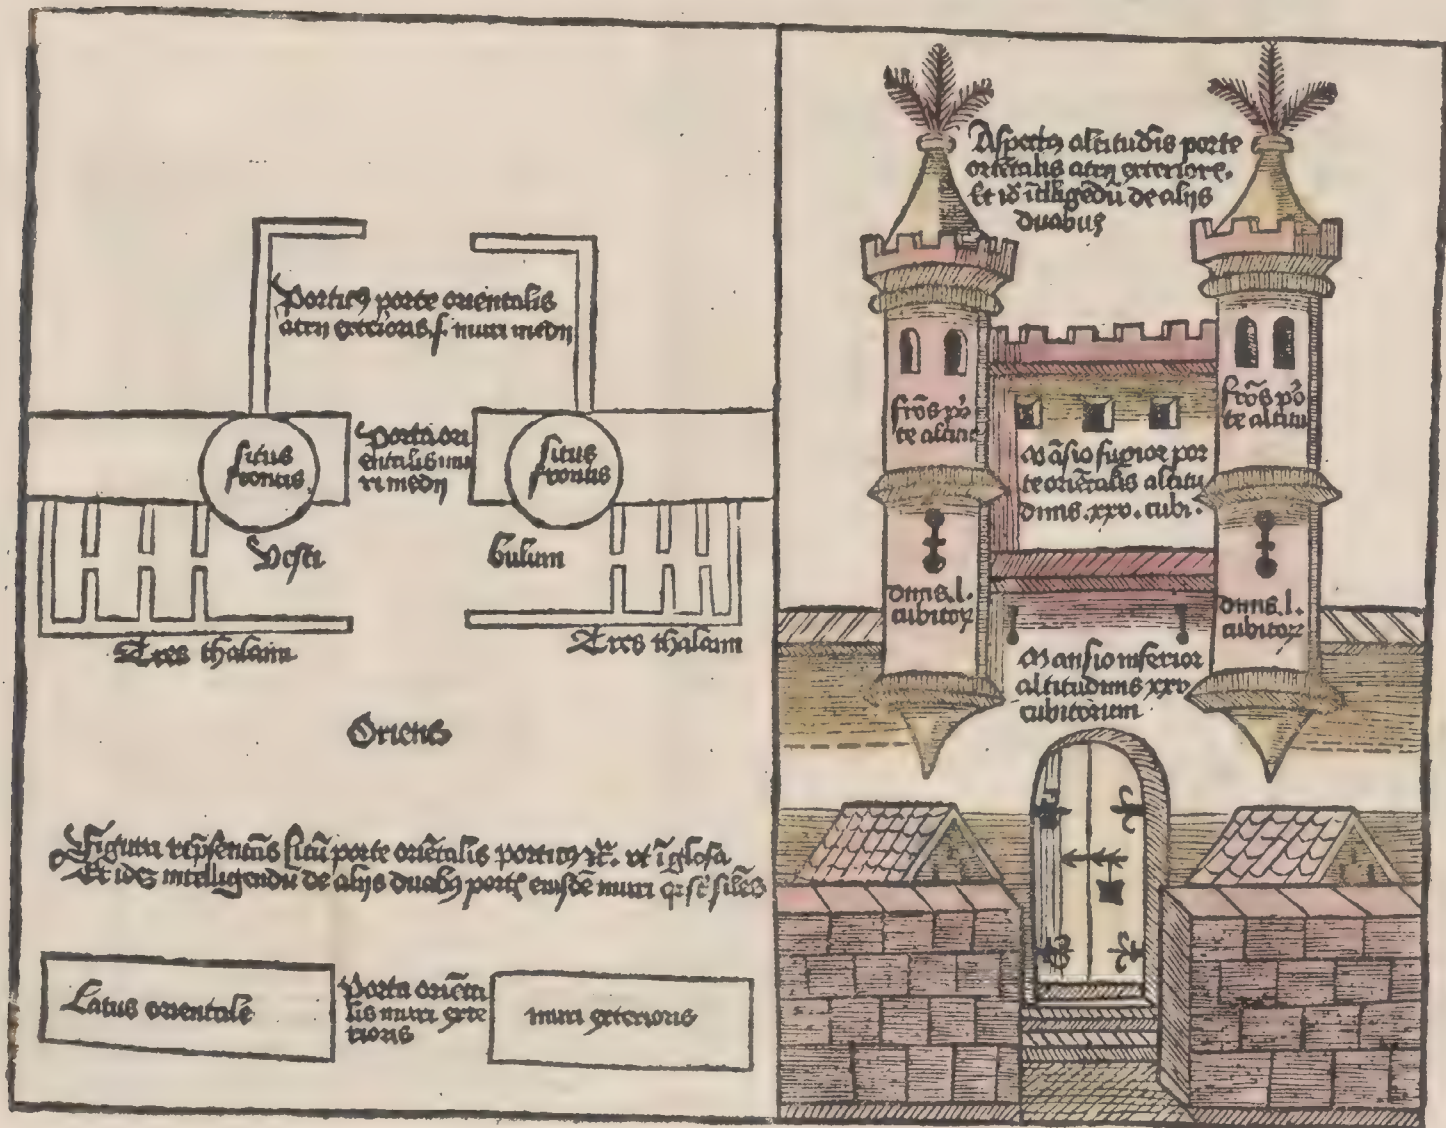 Porticꝰ porte orientalis
atrij exterioris .s. muri medij
situs
frontis.
Porta ori
entalis mu
ri medij
situs
frontis
Vesti
bulum
Tres thalami
Tres thalami
Oriens
Figura rep̄sentās sitū porte oriētalis porticꝰ ⁊c̄. vt ī glosa
Et idē intelligendū de alijs duabꝰ portꝭ eiusdē muri
Latus orientale
Porta oriēta
lis muri exte
rioris
muri exterioris
Aspectꝰ altitudīs porte
oriētalis atrij exteriore.
Et iō ītelligēdū de alijs
duabus
frōs por
te altitu
frōs por
te altitu
Māsio suꝑior por
te oriētalis altitu
dinis .xxv. cubi.
dinis .l.
cubitoꝝ
dinis .l.
cubitoꝝ
Mansio inferior
altitudinis xxv
cubitorum